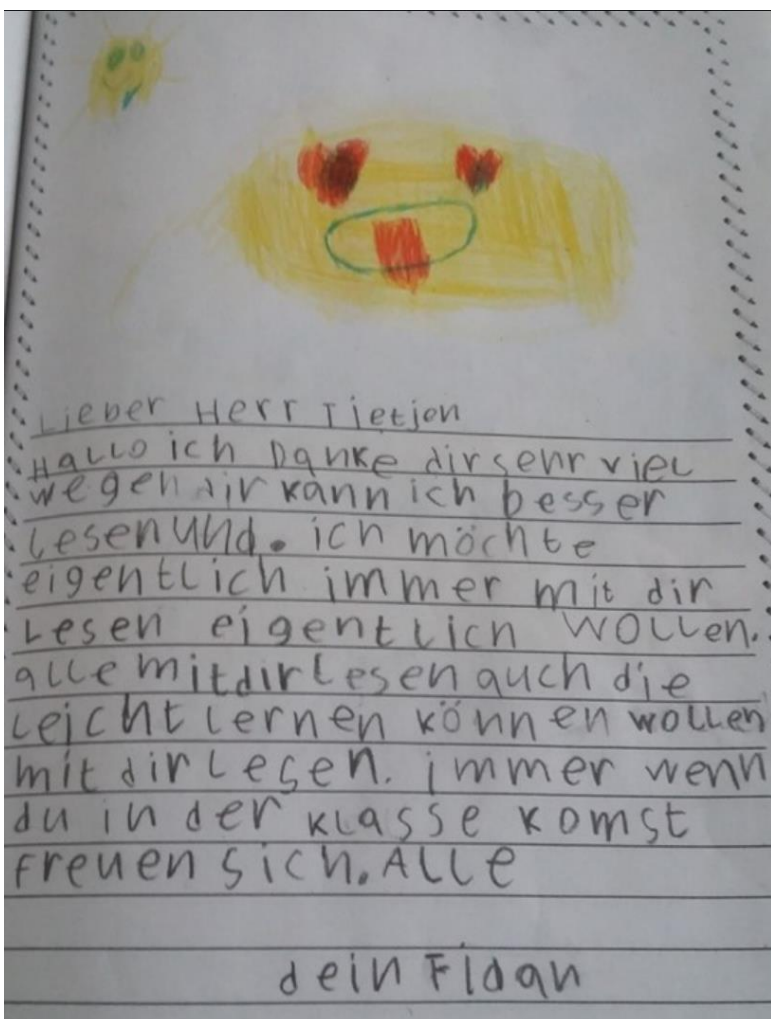 Lieber Herr Tietjen
HALLO ich Danke dir sehr viel
wegen dir kann ich besser
Lesen und. ich möchte
eigentlich immer mit dir
Lesen eigentlich wollen.
alle mit dir Lesen auch die
Leicht lernen können wollen
mit dir Lesen. immer wenn
du in der Klasse komst
freuen sich. Alle
dein Fidan